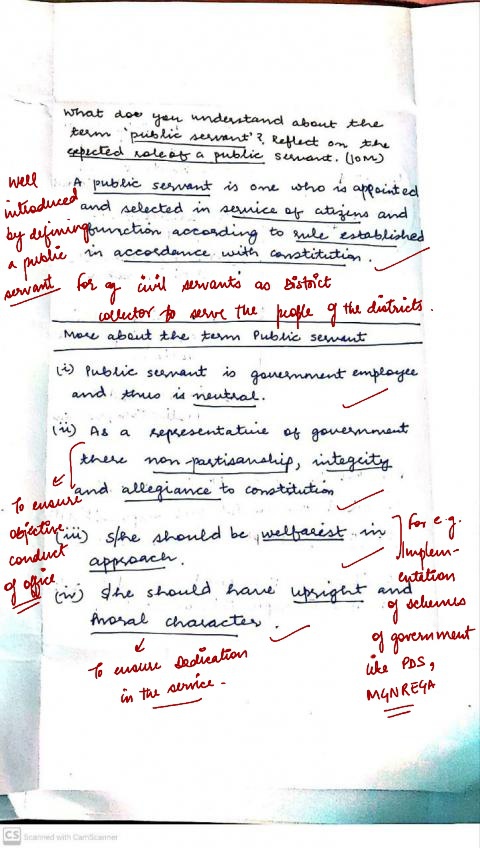 What doe you understand about the
term 'public servant'? Reflect on the
expected role of a public servant. (10M)
Well
introduced
by defining
a public
servant
A public servant is one who is appointed
and selected in service of citizens and
function according to rule established
in accordance with constitution.
For eg civil servants as District
collector to serve the people of the districts.
More about the term Public servant
(i) Public servant is government employee
and thus is neutral.
(ii) As a representative of government
there non-partisanship, integrity
and allegiance to constitution
To ensure
objective
conduct
of office
(iii) s/he should be welfarist in
approach.
For e.g.
Implem-
entation
of schemes
of government
like PDS,
MGNREGA
(iv) s/he should have upright and
moral character.
To ensure Dedication
in the service.
CS Scanned with CamScanner